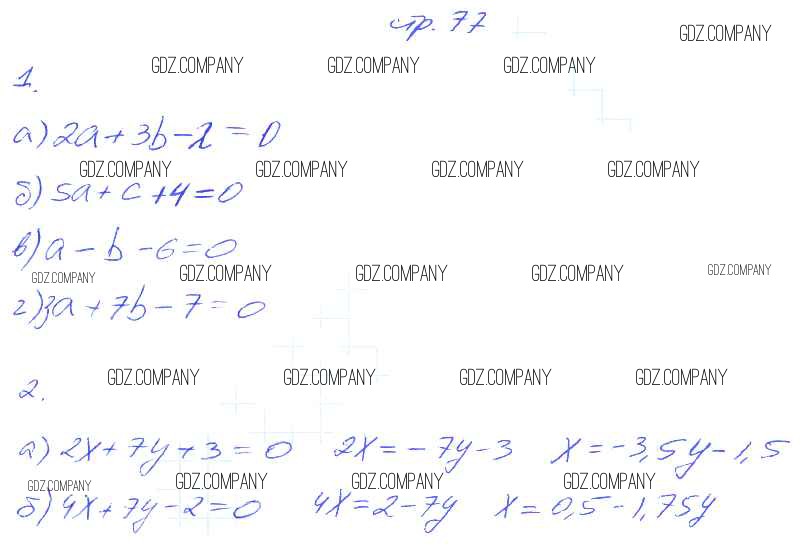 стр. 77
GDZ.COMPANY
GDZ.COMPANY GDZ.COMPANY GDZ.COMPANY
1.
а) 2a + 3b - 2 = 0
GDZ.COMPANY GDZ.COMPANY GDZ.COMPANY GDZ.COMPANY
б) 5a + c + 4 = 0
в) a - b - 6 = 0
GDZ.COMPANY GDZ.COMPANY GDZ.COMPANY GDZ.COMPANY GDZ.COMPANY
г) 3a + 7b - 7 = 0
GDZ.COMPANY GDZ.COMPANY GDZ.COMPANY GDZ.COMPANY
2.
а) 2x + 7y + 3 = 0 2x = -7y - 3 x = -3,5y - 1,5
GDZ.COMPANY GDZ.COMPANY GDZ.COMPANY GDZ.COMPANY
б) 4x + 7y - 2 = 0 4x = 2 - 7y x = 0,5 - 1,75y